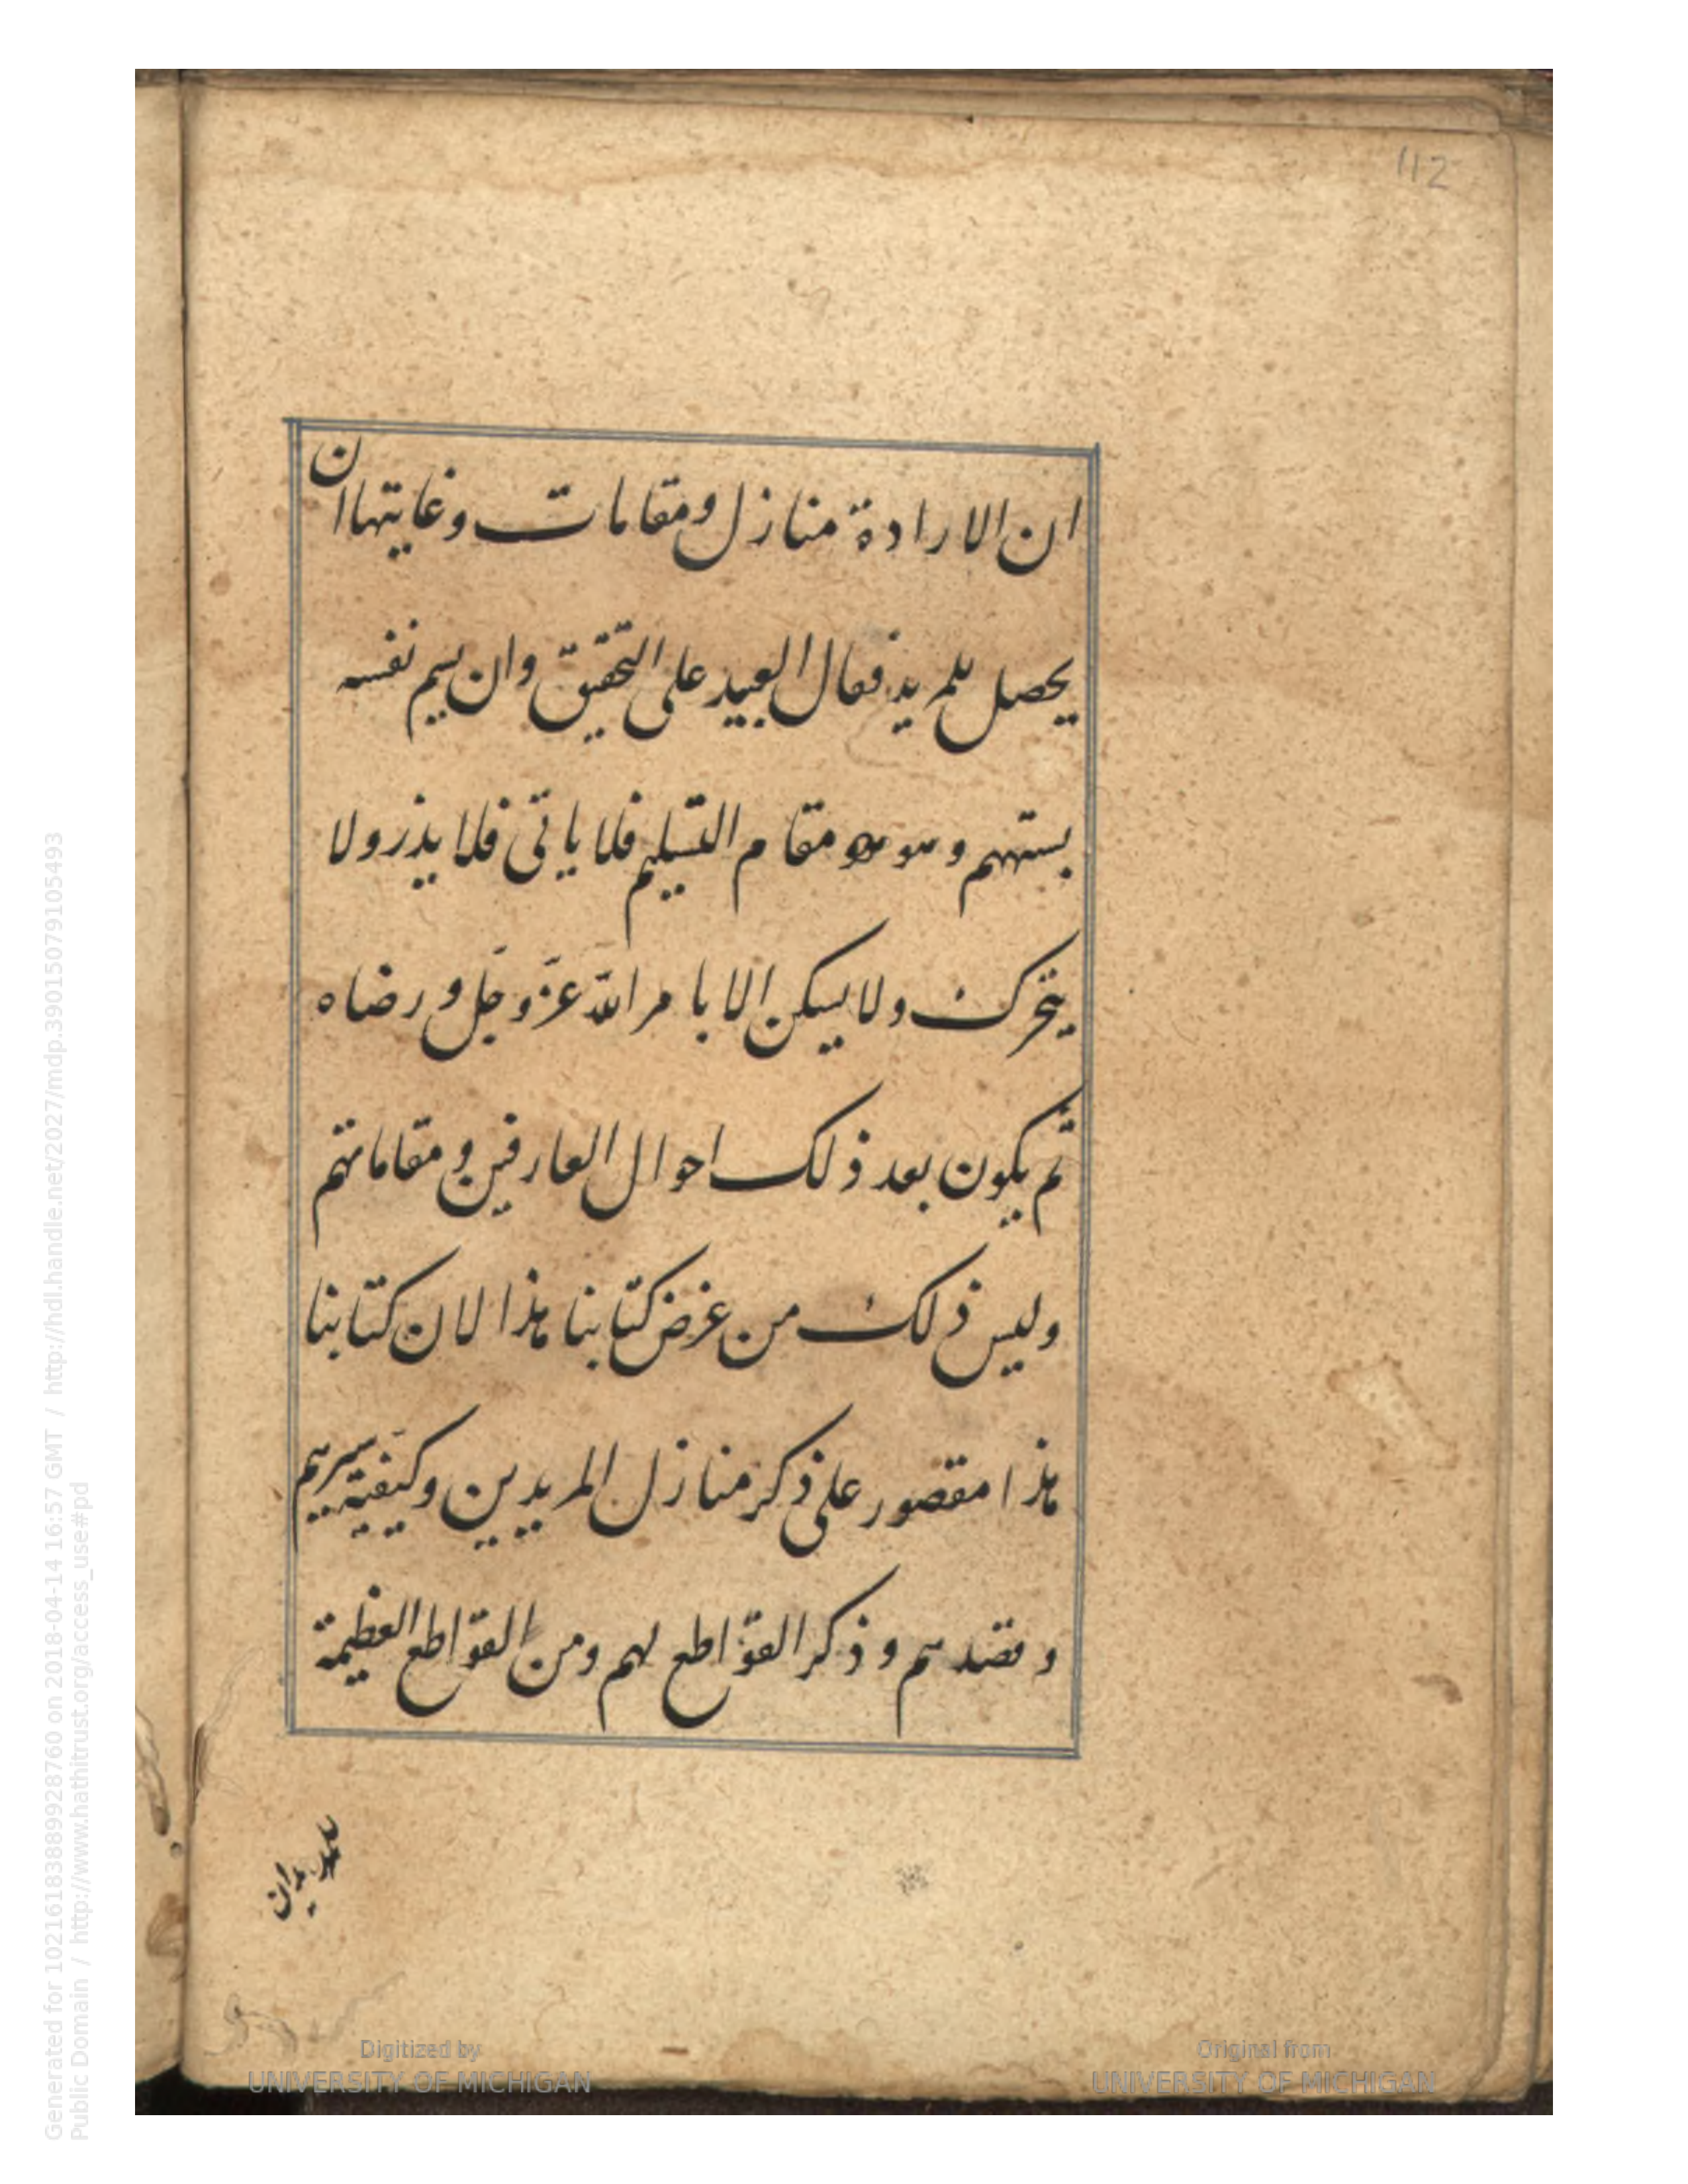 112
ان الارادة منازل ومقامات وغايتها ان
يحصل للمريد فعال العبيد على التحقيق وان يسم نفسه
بستهم وهو مقام التسليم فلا ياتى فلا يذر ولا
يتحرك ولا يسكن الا بامر الله عزّ وجَل ورضاه
ثم يكون بعد ذلك احوال العارفين ومقاماتهم
وليس ذلك من غرض كتابنا هذا لان كتابنا
هذا مقصور على ذكر منازل المريدين وكيفية سيرهم
وقصدهم وذكر القوّاطع لهم ومن القوّاطع العظيمة
Digitized by
UNIVERSITY OF MICHIGAN
Original from
UNIVERSITY OF MICHIGAN
Generated for 102161838899928760 on 2018-04-14 16:57 GMT / http://hdl.handle.net/2027/mdp.39015079105493
Public Domain / http://www.hathitrust.org/access_use#pd